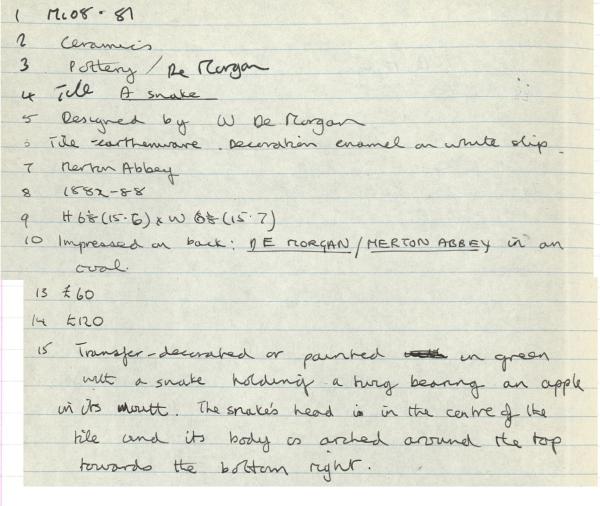 1 Mc08 - 87
2 Ceramics
3 Pottery / De Morgan
4 Tile A snake
5 Designed by W De Morgan
6 Tile - earthenware. Decoration enamel on white slip.
7 Merton Abbey
8 1882-88
9 H 6⅛ (15·6) x W 6⅛ (15·7)
10 Impressed on back: DE MORGAN / MERTON ABBEY in an
oval.
13 £60
14 £120
15 Transfer-decorated or painted in green
with a snake holding a twig bearing an apple
in its mouth. The snake's head is in the centre of the
tile and its body is arched around the top
towards the bottom right.